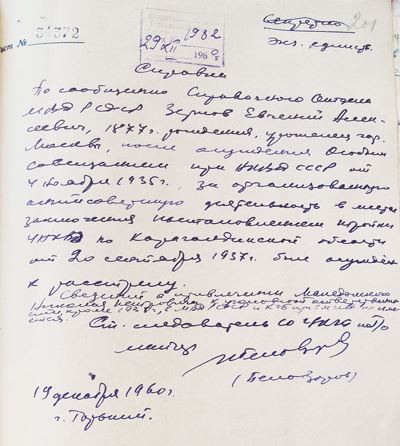 34372
1982
29 XII 1960 г
Секретно
201
экз. единств.
Справка
По сообщению Справочного Отдела
МВД РСФСР Зернов Евгений Алек-
сеевич, 1877 г. рождения, уроженец гор.
Москвы, после осуждения Особым
совещанием при НКВД СССР от
4 ноября 1935 г., за организованную
антисоветскую деятельность в местах
заключения постановлением тройки
УНКВД по Карагандинской области
от 20 сентября 1937 г. был осужден
к расстрелу.
Сведений о привлечении Македонского
Николая Петровича к уголовной ответственно
сти, кроме 193 г., в МВД РСФСР и КГБ при не
ется.
Ст. следователь СО УКГБ по Г/о
майор
(Беловзоров)
19 декабря 1960 г.
г. Горький.